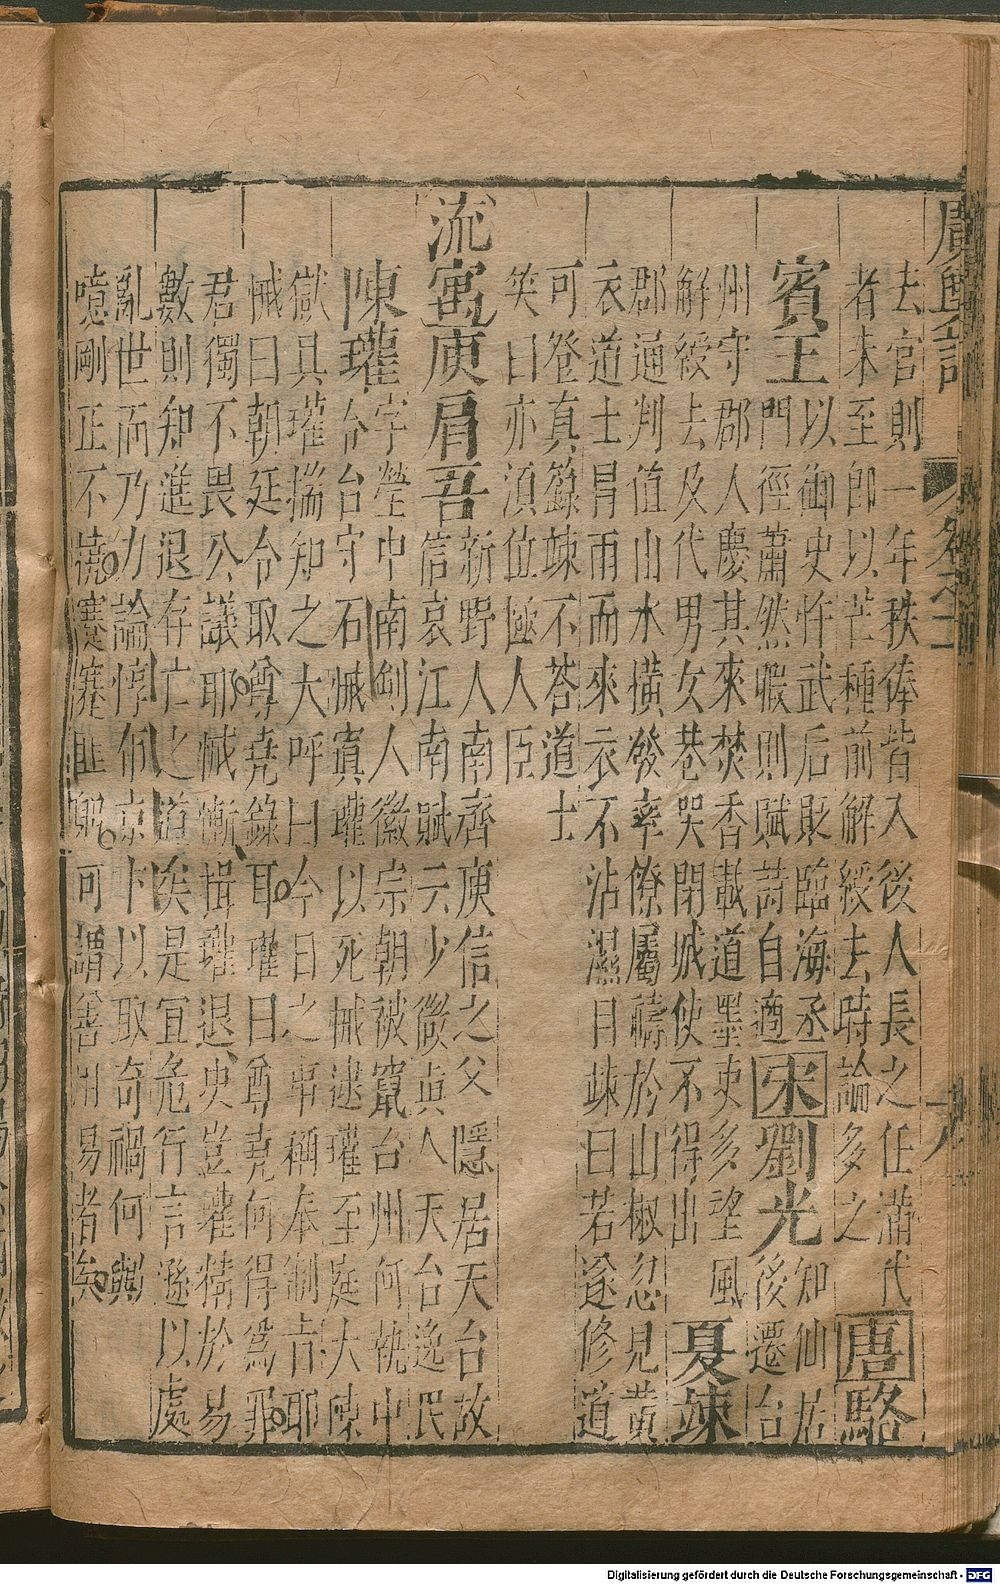 廣輿記 卷之十一
去官則一年秩俸皆入後人長之任滿代
者未至即以芒種前解綬去時論多之
唐駱
賓王
以御史忤武后貶臨海丞
門徑蕭然暇則賦詩自適
宋劉光
知仙居
後遷台
州守郡人慶其來焚香載道墨吏多望風
解綬去及代男女巷哭閉城使不得出
夏竦
郡通判值山水橫發率僚屬禱於山椒忽見黃
衣道士冒雨而來衣不沾濕目竦曰若遂修道
可登真籙竦不荅道士
笑曰亦須位極人臣
流寓庾肩吾
新野人南齊庾信之父隱居天台故
信哀江南賦云少微真人天台逸民
陳瓘
字瑩中南劍人徽宗朝被竄台州何執中
令台守石悈寘瓘以死悈逮瓘至庭大陳
獄具瓘揣知之大呼曰今日之事稱奉制旨耶
悈曰朝廷令取尊堯錄耳瓘曰尊堯何得為罪
君獨不畏公議耶悈慚揖瓘退史豈瓘精於易
數則知進退存亡之道矣是宜危行言遜以處
亂世而乃力論惇京卞以取奇禍何與
噫剛正不撓蹇蹇匪躬可謂善用易者矣
Digitalisierung gefördert durch die Deutsche Forschungsgemeinschaft - DFG